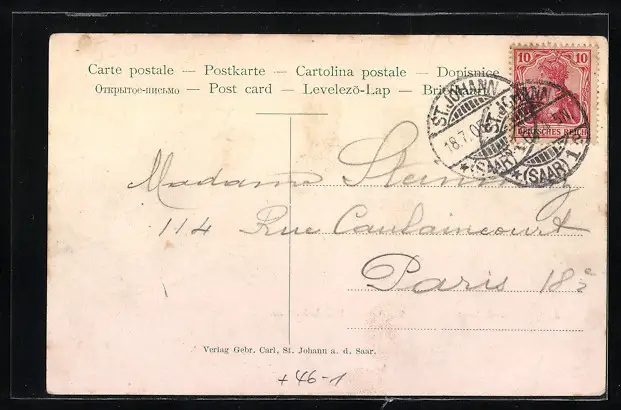 Carte postale — Postkarte — Cartolina postale — Dopisnice
Открытое-письмо — Post card — Levelezō-Lap —
10 10
DEUTSCHES REICH
ST. JOHANN
18.7.
* (SAAR) *
ST. JOHANN
* (SAAR) 1
Madame
114 Rue Caulaincourt
Paris 18e
Verlag Gebr. Carl, St. Johann a. d. Saar.
+46-1